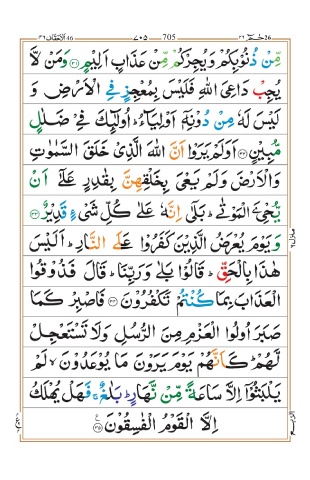 الاحقاف ٤٦ ٧٠٥ 705 حٰمٓ ٢٦
مِّنْ ذُنُوْبِكُمْ وَيُجِرْكُمْ مِّنْ عَذَابٍ اَلِيْمٍ ﴿۳۱﴾ وَمَنْ لَّا
يُجِبْ دَاعِىَ اللّٰهِ فَلَيْسَ بِمُعْجِزٍ فِى الْاَرْضِ وَ
لَيْسَ لَهٗ مِنْ دُوْنِهٖۤ اَوْلِيَآءُ ؕ اُولٰٓئِكَ فِىْ ضَلٰلٍ
مُّبِيْنٍ ﴿۳۲﴾ اَوَلَمْ يَرَوْا اَنَّ اللّٰهَ الَّذِىْ خَلَقَ السَّمٰوٰتِ
وَالْاَرْضَ وَلَمْ يَعْىَ بِخَلْقِهِنَّ بِقٰدِرٍ عَلٰٓى اَنْ
يُّحْیِۦَ الْمَوْتٰى ؕ بَلٰٓى اِنَّهٗ عَلٰى كُلِّ شَىْءٍ قَدِيْرٌ ﴿۳۳﴾
وَيَوْمَ يُعْرَضُ الَّذِيْنَ كَفَرُوْا عَلَى النَّارِ ؕ اَلَيْسَ
هٰذَا بِالْحَقِّ ؕ قَالُوْا بَلٰى وَرَبِّنَا ؕ قَالَ فَذُوْقُوا
الْعَذَابَ بِمَا كُنْتُمْ تَكْفُرُوْنَ ﴿۳۴﴾ فَاصْبِرْ كَمَا
صَبَرَ اُولُوا الْعَزْمِ مِنَ الرُّسُلِ وَلَا تَسْتَعْجِلْ
لَّهُمْ ؕ كَاَنَّهُمْ يَوْمَ يَرَوْنَ مَا يُوْعَدُوْنَ ۙ لَمْ
يَلْبَثُوْۤا اِلَّا سَاعَةً مِّنْ نَّهَارٍ ؕ بَلٰغٌ ۚ فَهَلْ يُهْلَكُ
اِلَّا الْقَوْمُ الْفٰسِقُوْنَ ﴿۳۵﴾